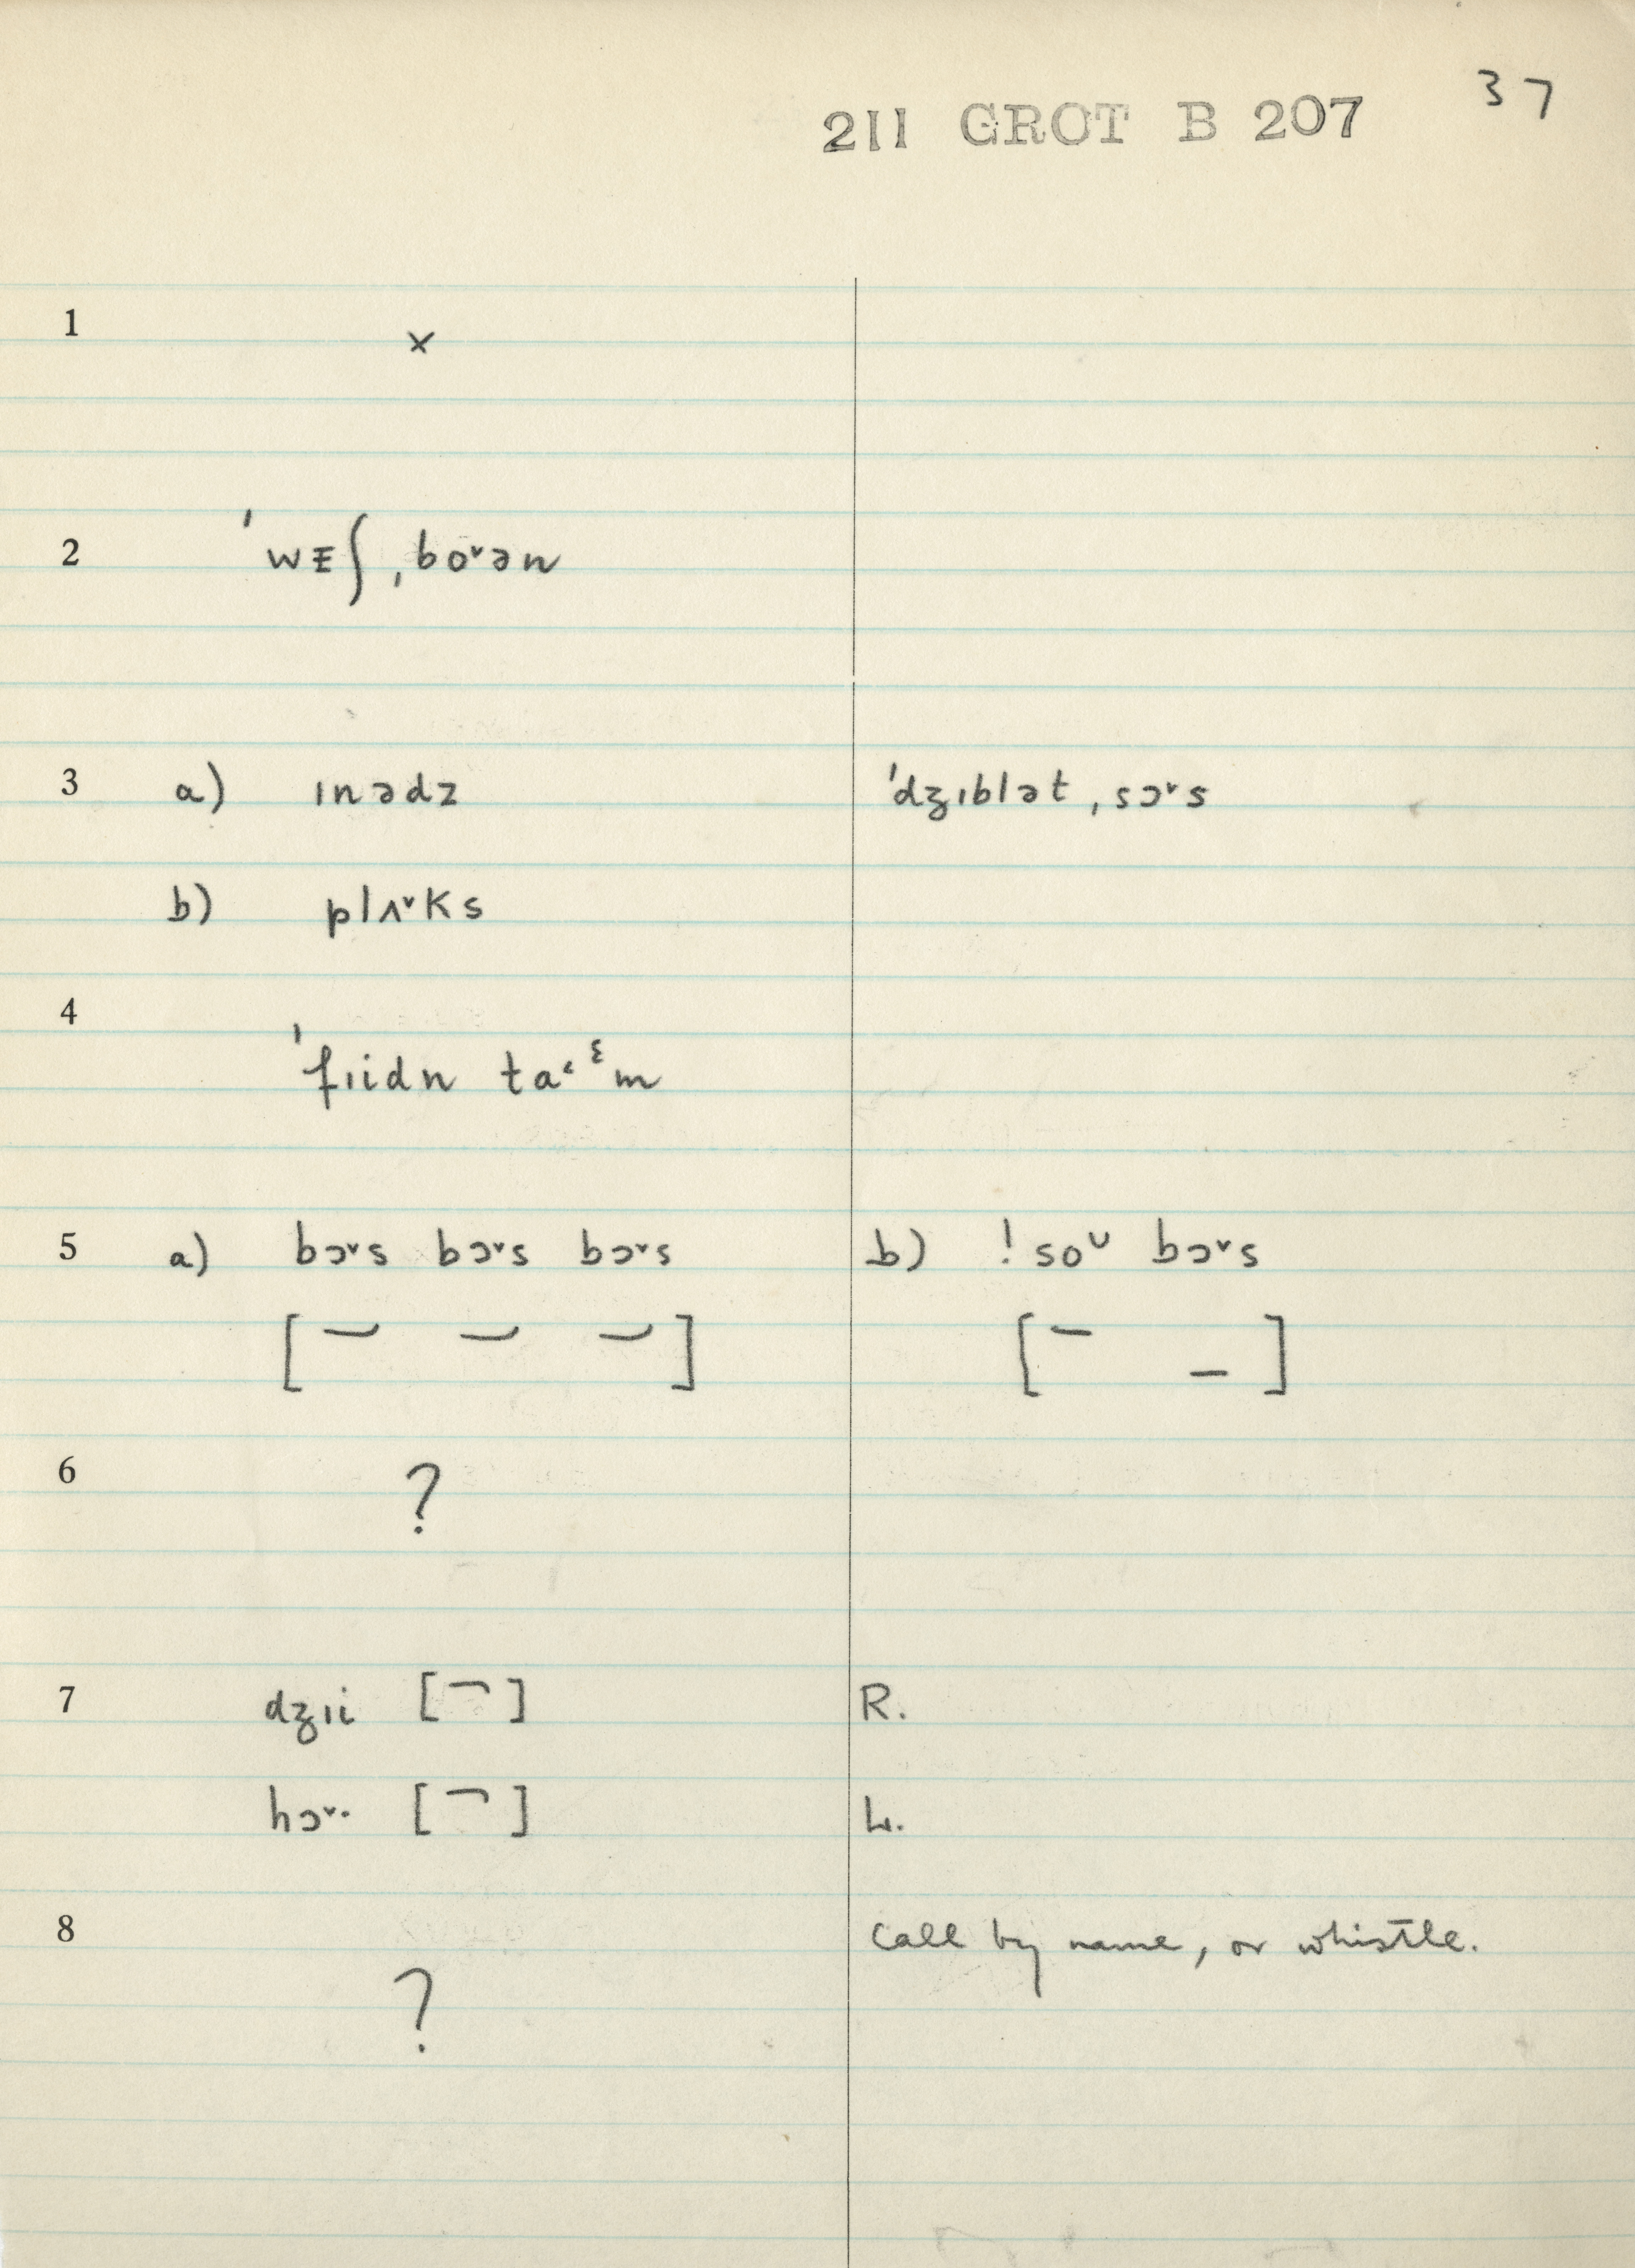 37
211 GROT B 207
1 x
2 ˈwᴇʃˌboˇən
3 a) ɪnədz ˈdʒɪblətˌsɔˇs
b) plʌˇks
4 ˈfɪidn taˑᵋm
5 a) bɔˇs bɔˇs bɔˇs b) !soᵁ bɔˇs
6 ?
7 dʒɪi [ ] R.
hɔˇ· [ ] L.
8 Call by name, or whistle.
?